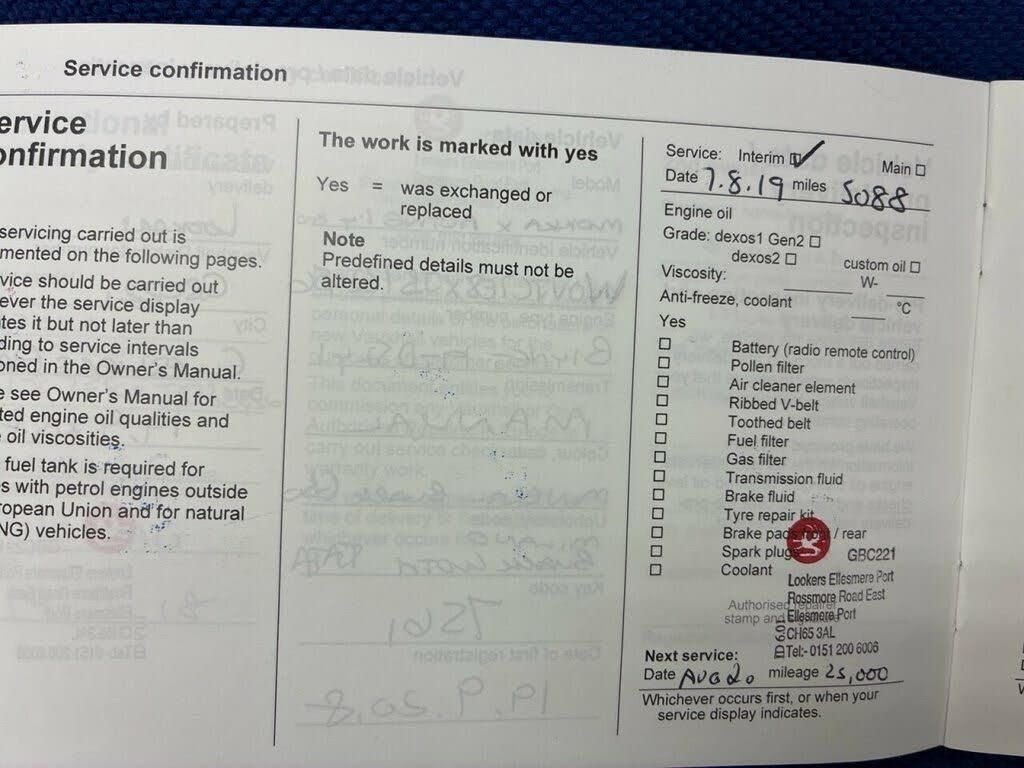 Service confirmation
ervice
onfirmation
servicing carried out is
mented on the following pages.
vice should be carried out
ever the service display
ates it but not later than
ding to service intervals
oned in the Owner's Manual.
e see Owner's Manual for
ted engine oil qualities and
oil viscosities.
fuel tank is required for
s with petrol engines outside
ropean Union and for natural
NG) vehicles.
The work is marked with yes
Yes = was exchanged or
replaced
Note
Predefined details must not be
altered.
Service: Interim ☑ Main ☐
Date 7.8.19 miles 5088
Engine oil
Grade: dexos1 Gen2 ☐
dexos2 ☐ custom oil ☐
Viscosity: W-
Anti-freeze, coolant °C
Yes
☐ Battery (radio remote control)
☐ Pollen filter
☐ Air cleaner element
☐ Ribbed V-belt
☐ Toothed belt
☐ Fuel filter
☐ Gas filter
☐ Transmission fluid
☐ Brake fluid
☐ Tyre repair kit
☐ Brake pads front / rear
☐ Spark plugs
☐ Coolant
GBC221
Lookers Ellesmere Port
Rossmore Road East
Ellesmere Port
CH65 3AL
Tel:- 0151 200 6006
Authorised repairer
stamp and signature
Next service:
Date Aug 20 mileage 25,000
Whichever occurs first, or when your
service display indicates.